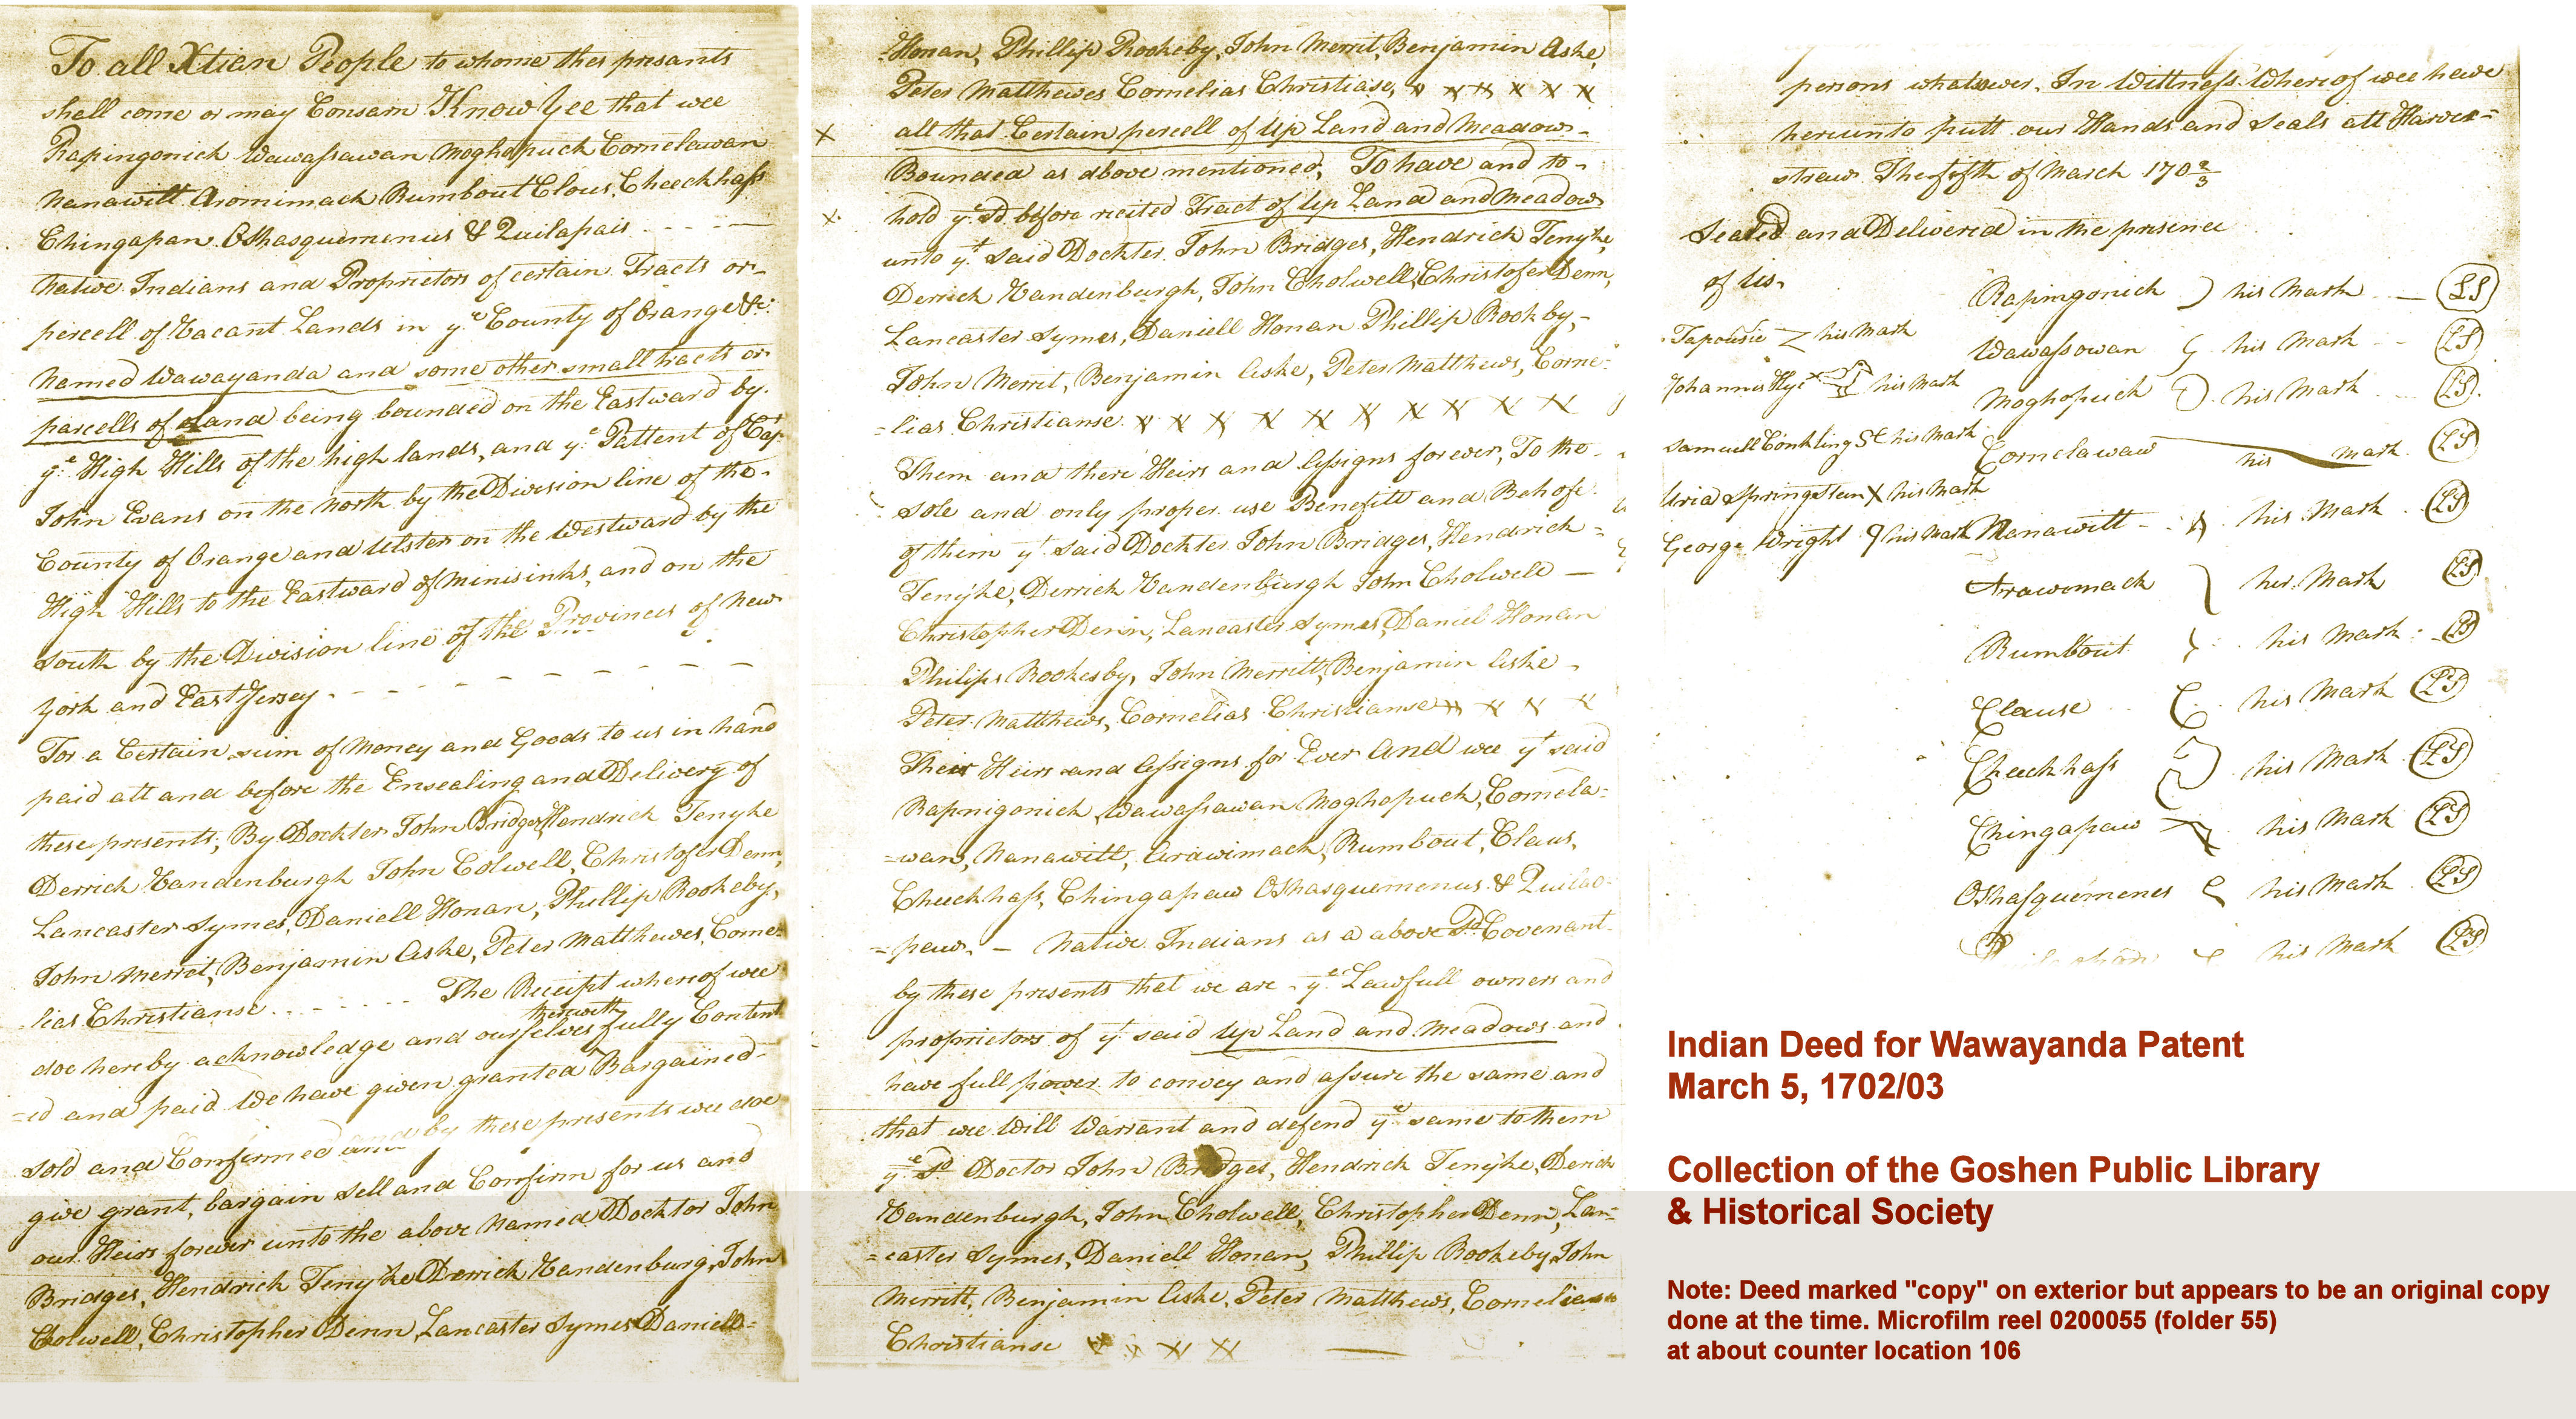 To all Xtian People to whome thes presants
shall come or may Consarn Know Yee that wee
Rapingonick Wawassawan Moghopuck Comelawan
Nanawitt Aromimack Rumbout Clous, Cheeckhass
Chingapan Oshasquemenus & Quilapais - - - -
Native Indians and Proprietors of certain Tracts or
percell of Vacant Lands in ye County of Orange &c:
Named Wawayanda and some other small tracts or
parcells of Land being bounded on the Eastward by
ye High Hills of the high lands, and ye Pattent of Cap
John Evans on the North by the Division line of the
County of Orange and Ulster on the Westward by the
High Hills to the Eastward of Minisinks, and on the
South by the Division line of the Provinces of New
York and East Jersey - - - - - - - -
For a Certain sum of Money and Goods to us in hand
paid att and before the Ensealing and Delivery of
these presents; By Dockter John Bridges Hendrick Tenyke
Derrick Vandenburgh John Colwell, Christofer Denn,
Lancaster Symes, Daniell Honan, Phillip Rookeby,
John Merrit, Benjamin Aske, Peter Matthewes, Corne=
lias Christianse - - - - - - The Receipt whereof wee
doe hereby acknowledge and ourselves therewith fully Content
=ed and paid We have given granted Bargained
sold and Confirmed and by these presents wee doe
give grant, bargain sell and Confirm for us and
our Heirs forever unto the above Named Docktor John
Bridges, Hendrick Tenyke Derrick Vandenburg, John
Cholwell, Christopher Denn, Lancaster Symes Daniell=
=Honan, Phillip Rookeby, John Merrit, Benjamin Aske,
Peter Matthewes Cornelias Christianse, x x x x x x
x all that Certain percell of Up Land and Meadow
Bounded as above mentioned, To have and to
x hold ye sd before recited Tract of Up Land and Meadow
unto yt said Dockter John Bridges, Hendrick Tenyke,
Derrick Vandenburgh, John Cholwell, Christofer Denn,
Lancaster Symes, Daniell Honan Phillip Rookby,
John Merrit, Benjamin Aske, Peter Matthews, Corne:
=lias Christianse x x x x x x x x x
Them and there Heirs and Assigns forever, To the
sole and only proper use Benefitt and Behofe
of them yt said Dockter John Bridges, Hendrick =
Tenyke, Derrick Vandenburgh John Cholwell —
Christopher Denn, Lancaster Symes, Daniel Honan
Philips Rookesby, John Merritt, Benjamin Aske
Peter Matthews, Cornelias Christianse x x x x
Their Heirs and Assigns for Ever And wee yt said
Rapnigonick, Wawassawan Moghopuck, Comela=
=wan, Nanawitt, Arawimack, Rumbout, Claus,
Cheeckhass, Chingapaw Oshasquemenus & Quilao=
=paw, - Native Indians as a above sd Covenant
by these presents that we are - ye Lawfull owners and
proprietors of yt said Up Land and Meadows and
have full power to convey and assure the same and
that wee Will Warrant and defend ye same to them
ye sd Doctor John Bridges, Hendrick Tenyke, Derick
Vandenburgh, John Cholwell, Christopher Denn, Lan=
=caster Symes, Daniell Honan, Phillip Rookeby, John
Merritt, Benjamin Aske, Peter Matthews, Cornelias
Christianse x x x x
persons whatsoever. In Wittness Whereof wee have
hereunto putt our Hands and Seals att Haver=
straw The fifth of March 170 2/3
Sealed and Delivered in the presence
of Us.
Rapingonick his Mark LS
Tapousie his Mark
Wawassowan his Mark LS
Johannis Hye his Mark
Moghopuck his Mark LS
Samuell Conkling SC his Mark
Comelawaw his mark LS
Uria Springsteen X his Mark
Nanawitt his Mark LS
George Wright his Mark
Arawomack his Mark LS
Rumbout his Mark LS
Clause his Mark LS
Cheeckhass his Mark LS
Chingapaw his Mark LS
Oshasquemenes his Mark LS
his Mark LS
Indian Deed for Wawayanda Patent
March 5, 1702/03
Collection of the Goshen Public Library
& Historical Society
Note: Deed marked "copy" on exterior but appears to be an original copy
done at the time. Microfilm reel 0200055 (folder 55)
at about counter location 106